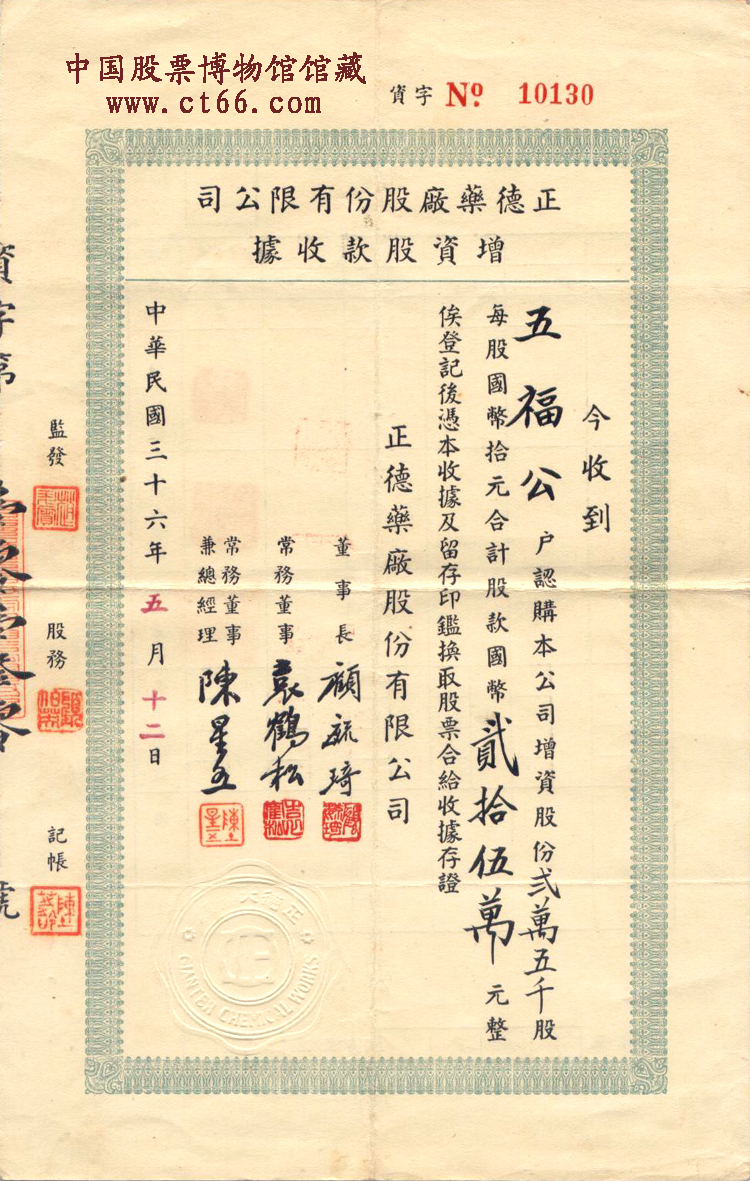 中国股票博物馆馆藏
www.ct66.com
資字 Nº 10130
正德藥廠股份有限公司
增資股款收據
今收到
五福公戶認購本公司增資股份弍萬五千股
每股國幣拾元合計股款國幣貳拾伍萬元整
俟登記後憑本收據及留存印鑑換取股票合給收據存證
正德藥廠股份有限公司
董事長 顧毓琦
常務董事 袁鶴松
常務董事兼總經理 陳星五
中華民國三十六年五月十二日
監發
股務
記帳
資字第
號
CHEMICAL WORKS